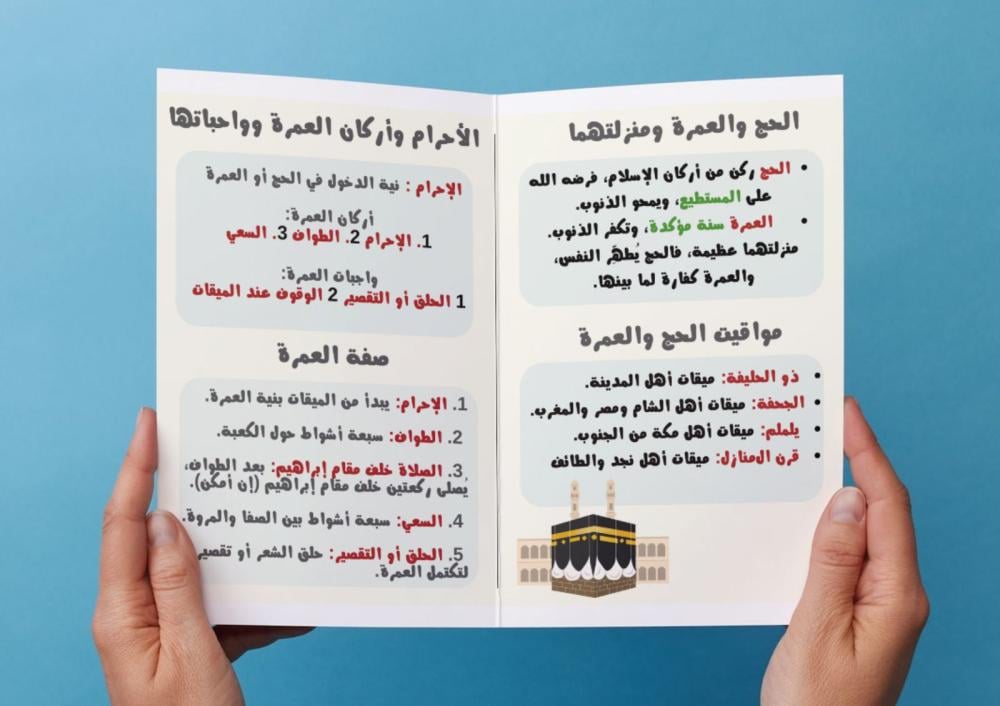 الحج والعمرة ومنزلتهما
• الحج ركن من أركان الإسلام، فرضه الله
على المستطيع، ويمحو الذنوب.
• العمرة سنة مؤكدة، وتكفر الذنوب.
منزلتهما عظيمة، فالحج يُطهّر النفس،
والعمرة كفارة لما بينها.
مواقيت الحج والعمرة
• ذو الحليفة: ميقات أهل المدينة.
• الجحفة: ميقات أهل الشام ومصر والمغرب.
• يلملم: ميقات أهل مكة من الجنوب.
• قرن المنازل: ميقات أهل نجد والطائف
الأحرام وأركان العمرة وواحباتها
الإحرام : نية الدخول في الحج أو العمرة
أركان العمرة:
1. الإحرام 2. الطواف 3. السعي
واجبات العمرة:
1 الحلق أو التقصير 2 الوقوف عند الميقات
صفة العمرة
1. الإحرام: يبدأ من الميقات بنية العمرة.
2. الطواف: سبعة أشواط حول الكعبة.
3. الصلاة خلف مقام إبراهيم: بعد الطواف،
يُصلى ركعتين خلف مقام إبراهيم (إن أمكن).
4. السعي: سبعة أشواط بين الصفا والمروة.
5. الحلق أو التقصير: حلق الشعر أو تقصير
لتكتمل العمرة.